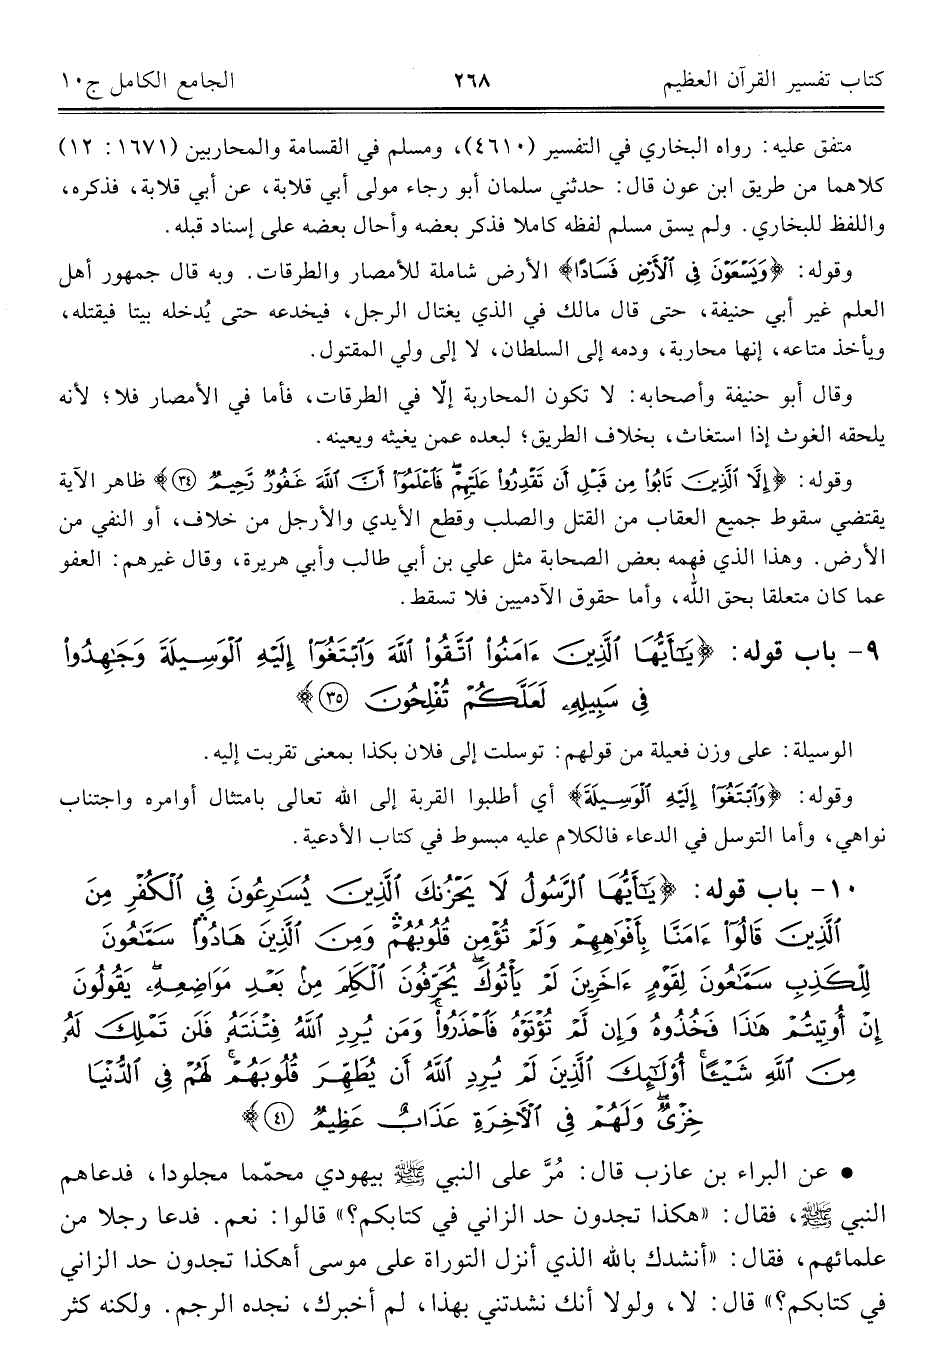 كتاب تفسير القرآن العظيم ٢٦٨ الجامع الكامل ج١٠
متفق عليه: رواه البخاري في التفسير (٤٦١٠)، ومسلم في القسامة والمحاربين (١٦٧١: ١٢)
كلاهما من طريق ابن عون قال: حدثني سلمان أبو رجاء مولى أبي قلابة، عن أبي قلابة، فذكره،
واللفظ للبخاري. ولم يسق مسلم لفظه كاملا فذكر بعضه وأحال بعضه على إسناد قبله.
وقوله: ﴿وَيَسۡعَوۡنَ فِي ٱلۡأَرۡضِ فَسَادًا﴾ الأرض شاملة للأمصار والطرقات. وبه قال جمهور أهل
العلم غير أبي حنيفة، حتى قال مالك في الذي يغتال الرجل، فيخدعه حتى يُدخله بيتا فيقتله،
ويأخذ متاعه، إنها محاربة، ودمه إلى السلطان، لا إلى ولي المقتول.
وقال أبو حنيفة وأصحابه: لا تكون المحاربة إلّا في الطرقات، فأما في الأمصار فلا؛ لأنه
يلحقه الغوث إذا استغاث، بخلاف الطريق؛ لبعده عمن يغيثه ويعينه.
وقوله: ﴿إِلَّا ٱلَّذِينَ تَابُواْ مِن قَبۡلِ أَن تَقۡدِرُواْ عَلَيۡهِمۡۖ فَٱعۡلَمُوٓاْ أَنَّ ٱللَّهَ غَفُورٞ رَّحِيمٞ ٣٤﴾ ظاهر الآية
يقتضي سقوط جميع العقاب من القتل والصلب وقطع الأيدي والأرجل من خلاف، أو النفي من
الأرض. وهذا الذي فهمه بعض الصحابة مثل علي بن أبي طالب وأبي هريرة، وقال غيرهم: العفو
عما كان متعلقا بحق الله، وأما حقوق الآدميين فلا تسقط.
٩- باب قوله: ﴿يَٰٓأَيُّهَا ٱلَّذِينَ ءَامَنُواْ ٱتَّقُواْ ٱللَّهَ وَٱبۡتَغُوٓاْ إِلَيۡهِ ٱلۡوَسِيلَةَ وَجَٰهِدُواْ
فِي سَبِيلِهِۦ لَعَلَّكُمۡ تُفۡلِحُونَ ٣٥﴾
الوسيلة: على وزن فعيلة من قولهم: توسلت إلى فلان بكذا بمعنى تقربت إليه.
وقوله: ﴿وَٱبۡتَغُوٓاْ إِلَيۡهِ ٱلۡوَسِيلَةَ﴾ أي أطلبوا القربة إلى الله تعالى بامتثال أوامره واجتناب
نواهي، وأما التوسل في الدعاء فالكلام عليه مبسوط في كتاب الأدعية.
١٠- باب قوله: ﴿يَٰٓأَيُّهَا ٱلرَّسُولُ لَا يَحۡزُنكَ ٱلَّذِينَ يُسَٰرِعُونَ فِي ٱلۡكُفۡرِ مِنَ
ٱلَّذِينَ قَالُوٓاْ ءَامَنَّا بِأَفۡوَٰهِهِمۡ وَلَمۡ تُؤۡمِن قُلُوبُهُمۡۛ وَمِنَ ٱلَّذِينَ هَادُواْۛ سَمَّٰعُونَ
لِلۡكَذِبِ سَمَّٰعُونَ لِقَوۡمٍ ءَاخَرِينَ لَمۡ يَأۡتُوكَۖ يُحَرِّفُونَ ٱلۡكَلِمَ مِنۢ بَعۡدِ مَوَاضِعِهِۦۖ يَقُولُونَ
إِنۡ أُوتِيتُمۡ هَٰذَا فَخُذُوهُ وَإِن لَّمۡ تُؤۡتَوۡهُ فَٱحۡذَرُواْۚ وَمَن يُرِدِ ٱللَّهُ فِتۡنَتَهُۥ فَلَن تَمۡلِكَ لَهُۥ
مِنَ ٱللَّهِ شَيۡـًٔاۚ أُوْلَٰٓئِكَ ٱلَّذِينَ لَمۡ يُرِدِ ٱللَّهُ أَن يُطَهِّرَ قُلُوبَهُمۡۚ لَهُمۡ فِي ٱلدُّنۡيَا
خِزۡيٞۖ وَلَهُمۡ فِي ٱلۡأٓخِرَةِ عَذَابٌ عَظِيمٞ ٤١﴾
• عن البراء بن عازب قال: مُرَّ على النبي ﷺ بيهودي محمّما مجلودا، فدعاهم
النبي ﷺ، فقال: «هكذا تجدون حد الزاني في كتابكم؟» قالوا: نعم. فدعا رجلا من
علمائهم، فقال: «أنشدك بالله الذي أنزل التوراة على موسى أهكذا تجدون حد الزاني
في كتابكم؟» قال: لا، ولولا أنك نشدتني بهذا، لم أخبرك، نجده الرجم. ولكنه كثر